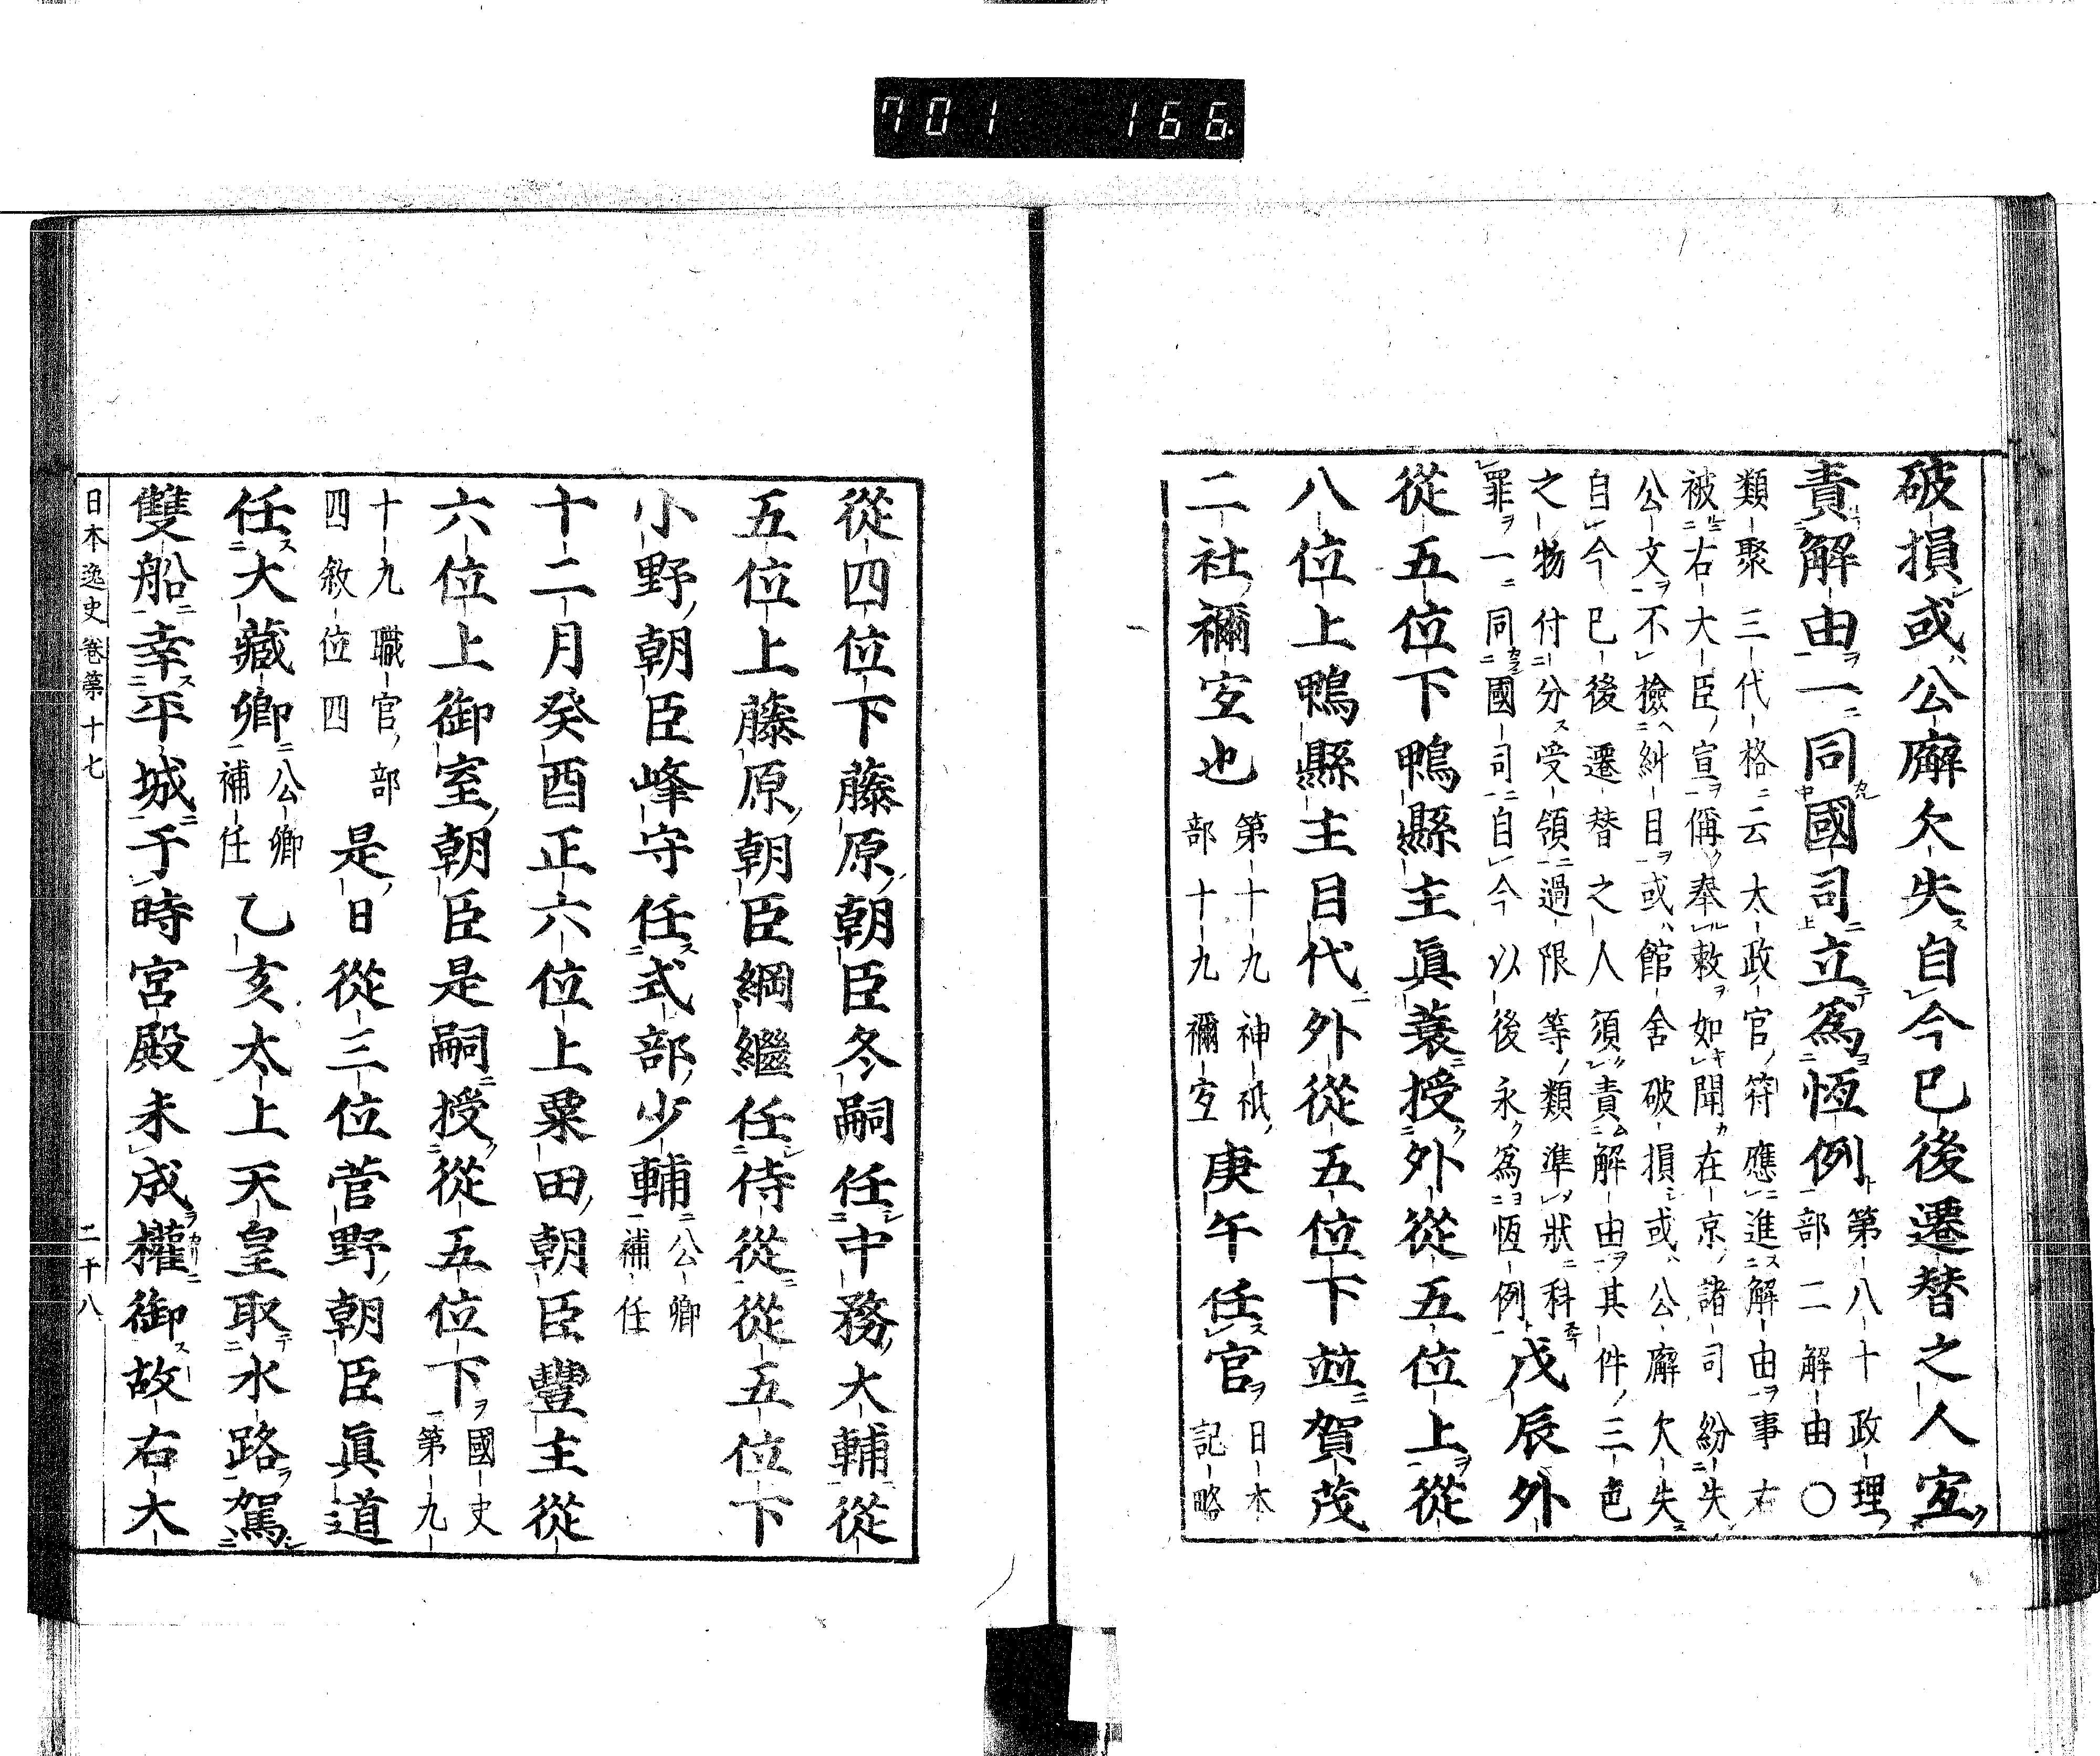 701 166
破損或公廨欠失自今已後遷替之人宜
責解由一同國司立爲恆例
第八十政理
部二解由〇
類聚三代格云太政官符應進解由事右
被右大臣宣偁奉敕如聞在京諸司紛失
公文不檢糾目或館舍破損或公廨欠失
自今已後遷替之人須責解由其件三色
之物付分受領過限等類準狀科
罪一同國司自今以後永爲恆例
戊辰外
從五位下鴨縣主眞蓑授外從五位上從
八位上鴨縣主目代外從五位下並賀茂
二社禰宜也
第十九神祇
部十九禰宜
庚午任官
日本
記略
從四位下藤原朝臣冬嗣任中務大輔從
五位上藤原朝臣綱繼任侍從從五位下
小野朝臣峰守任式部少輔
公卿
補任
十二月癸酉正六位上粟田朝臣豐主從
六位上御室朝臣是嗣授從五位下
國史
第九
十九職官部
四敘位四
是日從三位菅野朝臣眞道
任大藏卿
公卿
補任
乙亥太上天皇取水路駕
雙船幸平城于時宮殿未成權御故右大
日本逸史卷第十七 二十八